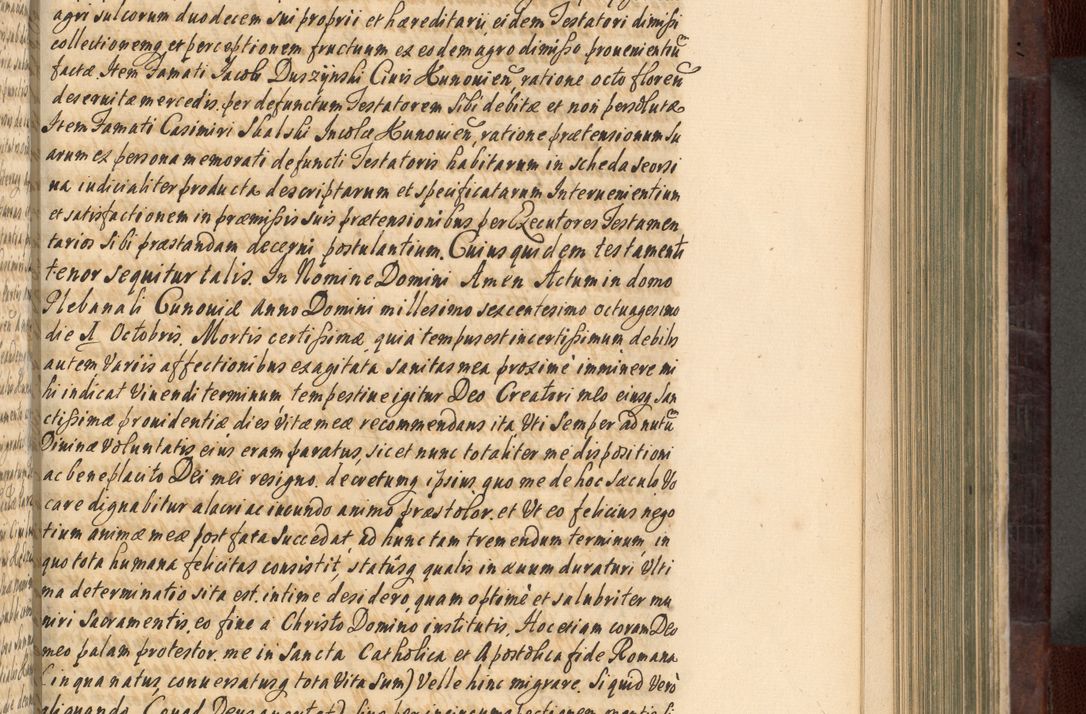 agri sulcorum duodecem sui proprii et hæreditarii, eidem Testatori dimissi
collectionemq et perceptionem fructuum ex eodem agro dimisso prouenientiu
factæ Item Famati Jacobi Duszynski Ciuis Kunouien, ratione octo floren
deseruitæ mercedis per defunctum Testatorem sibi debitæ et non persolutæ
Item Famati Casimiri Skalski Incolæ Kunouien, ratione prætensionum su
arum ex persona memorati defuncti Testatoris habitarum in scheda seorsi
ua iudicialiter producta descriptarum et specificatarum Interuenientium
et satisfactionem in præmissis suis prætensionibus per Executores Testamen
tarios sibi præstandam decerni postulantium. Cuius quidem testamenti
tenor sequitur talis. In Nomine Domini Amen Actum in domo
Plebanali Cunouiæ Anno Domini millesimo sexcentesimo octuagesimo
die Octobris. Mortis certissimæ, quia tempus est incertissimum debilis
autem variis affectionibus exagitata sanitas mea proximè imminere mi
hi indicat viuendi terminum tempestiue igitur Deo Creatori meo eiusq san
ctissimæ prouidentiæ dies vitæ meæ recommendans ita vti semper ad nutu
Diuinæ voluntatis eius eram paratus, sic et nunc totaliter me dispositioni
ac beneplacito Dei mei resigno, decretumq ipsius quo me de hoc sæculo vo
care dignabitur alacri ac iucundo animo præstolor. et vt eo felicius nego
tium animæ meæ post fata succedat, ad hunc tam tremendum terminum, in
quo tota humana felicitas consistit, statusq qualis in æuum duraturi vlti
ma determinatio sita est. intime desidero, quam optimè et salubriter mu
niri Sacramentis, eo fine a Christo Domino institutis. Hoc etiam coram Deo
meo palam protestor, me in Sancta Catholica et Apostolica fide Romana
(in qua natus, conuersatusq tota vita sum) velle hinc migrare. Si quid verò
aliquando (quod Deus auertat)